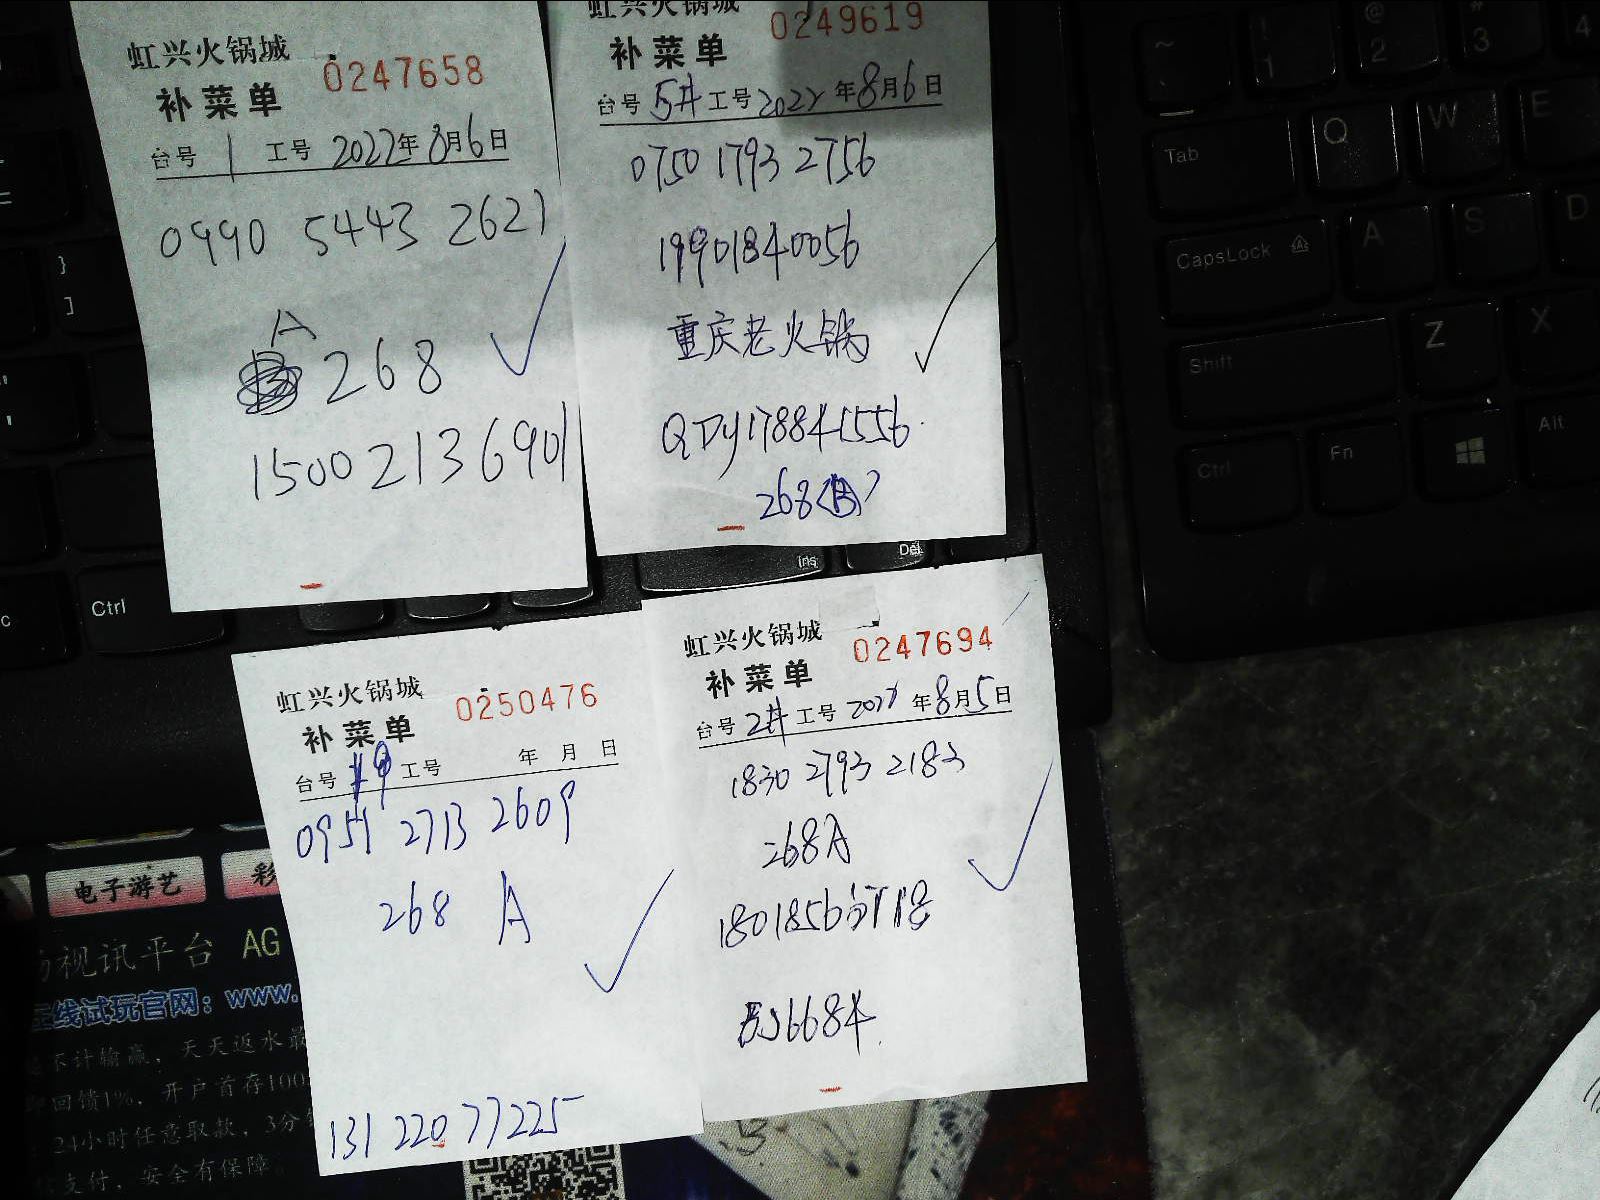 虹兴火锅城
0247658
补菜单
台号 1 工号 2022年8月6日
0990 5443 2621
A
268
15002136901
虹兴火锅城
0249619
补菜单
台号 5# 工号 2022年8月6日
0750 1793 2756
19901840056
重庆老火锅
268(B)
虹兴火锅城
0250476
补菜单
台号 工号 年 月 日
2713 2609
268 A
131 220 77225
虹兴火锅城
0247694
补菜单
台号 2# 工号 2022年8月5日
1830 2793 2183
268A
1801856
6684
电子游艺
彩
视讯平台 AG
在线试玩官网：www.
不计输赢，天天返水最
回馈1%，开户首存100
24小时任意取款，3分
支付，安全有保障。
~
!
1
@
2
#
3
4
Tab
Q
W
E
CapsLock
A
S
D
Shift
Z
X
Ctrl
Fn
Alt
}
]
Ctrl
Ins
Del